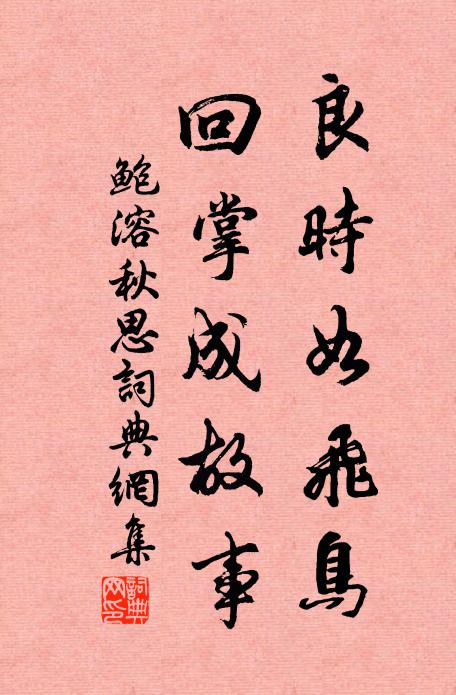 良時如飛鳥
回掌成故事
鮑溶秋思詞典網集
詞典網印